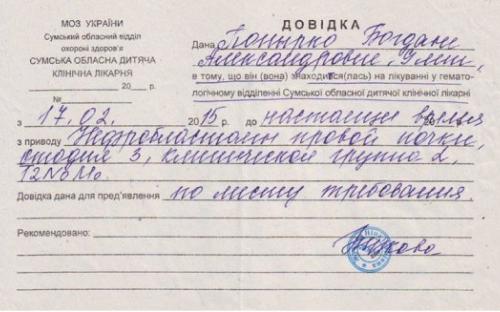 МОЗ УКРАЇНИ
Сумський обласний відділ
охорони здоров'я
СУМСЬКА ОБЛАСНА ДИТЯЧА
КЛІНІЧНА ЛІКАРНЯ
20 р.
№
ДОВІДКА
Дана Богдане
Александровне,
в тому, що він (вона) знаходится(лась) на лікуванні у гемато-
логічному відділенні Сумської обласної дитячої клінічної лікарні
з 17.02. 2015 р. до настоящее время
з приводу Нефробластомы правой почки,
стадия 3, клиническая группа 2,
T2N0M0
Довідка дана для пред'явлення по месту требования.
Рекомендовано: